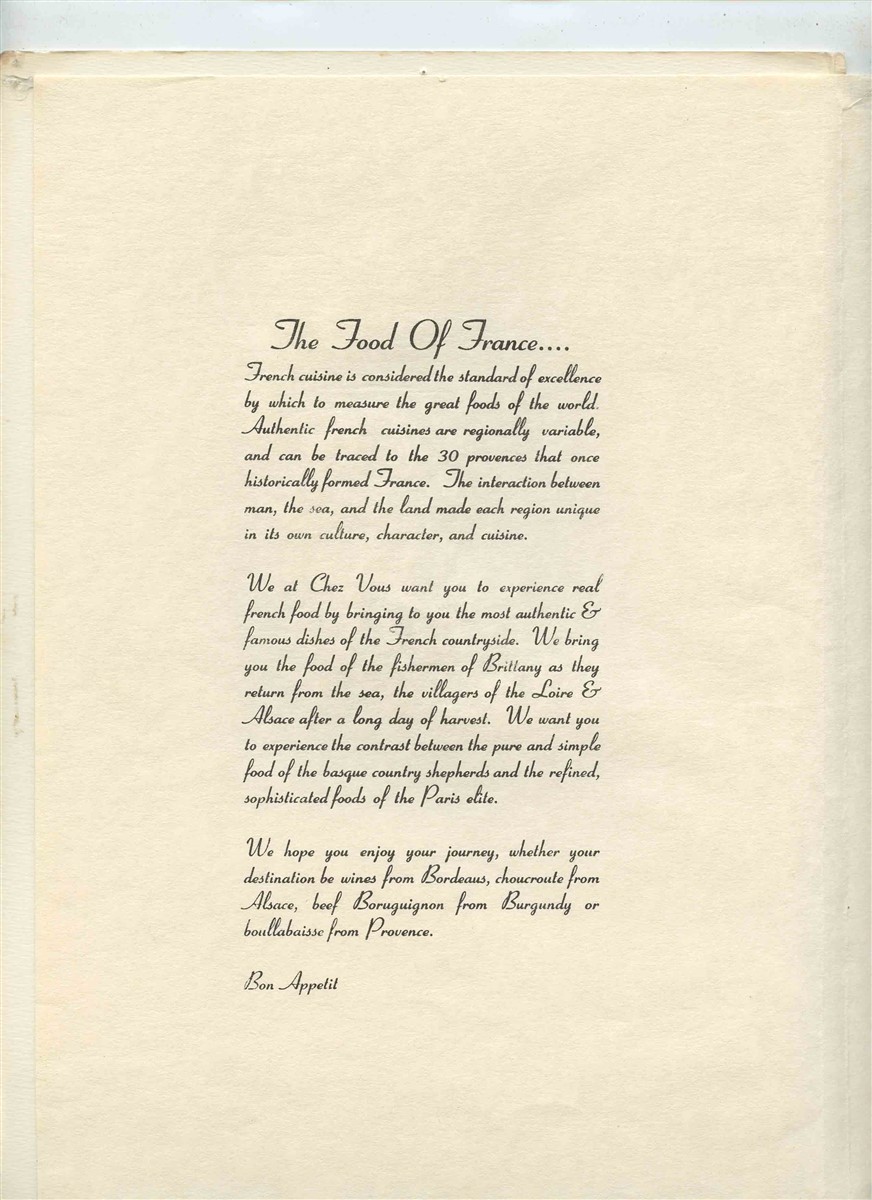 The Food Of France....
French cuisine is considered the standard of excellence
by which to measure the great foods of the world.
Authentic french cuisines are regionally variable,
and can be traced to the 30 provences that once
historically formed France. The interaction between
man, the sea, and the land made each region unique
in its own culture, character, and cuisine.
We at Chez Vous want you to experience real
french food by bringing to you the most authentic &
famous dishes of the French countryside. We bring
you the food of the fishermen of Brittany as they
return from the sea, the villagers of the Loire &
Alsace after a long day of harvest. We want you
to experience the contrast between the pure and simple
food of the basque country shepherds and the refined,
sophisticated foods of the Paris elite.
We hope you enjoy your journey, whether your
destination be wines from Bordeaus, choucroute from
Alsace, beef Boruguignon from Burgundy or
boullabaisse from Provence.
Bon Appetit